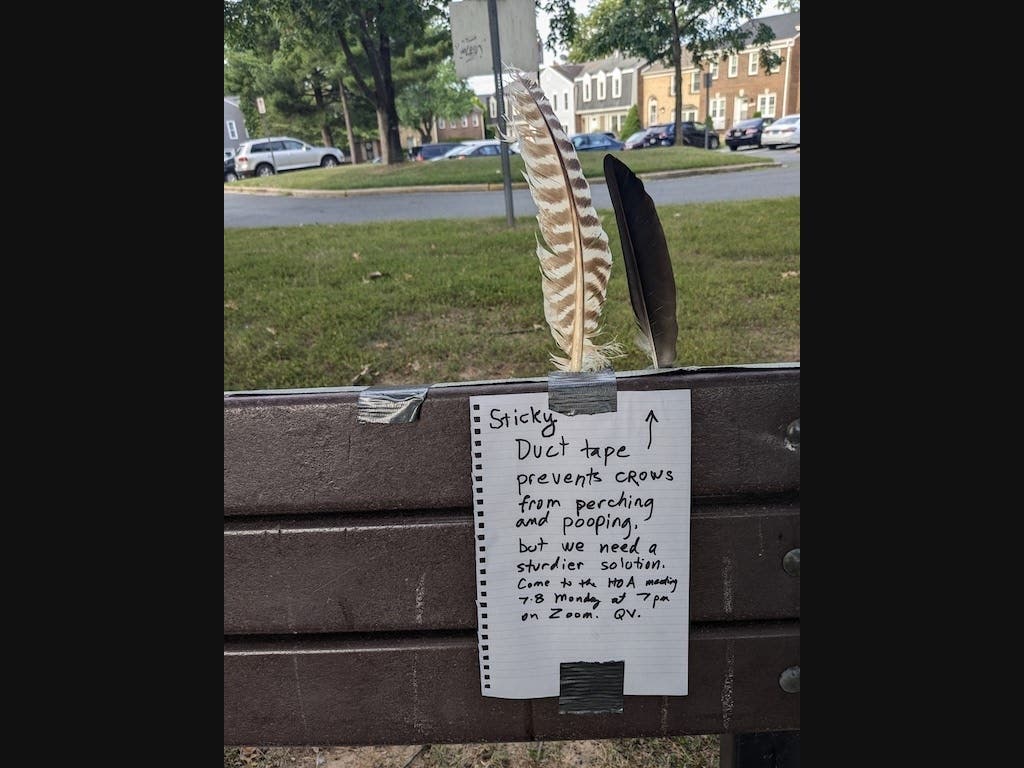 Sticky
Duct tape
prevents CROWS
from perching
and pooping,
but we need a
sturdier solution.
Come to the HOA meeting
7-8 Monday at 7pm
on Zoom. QV.